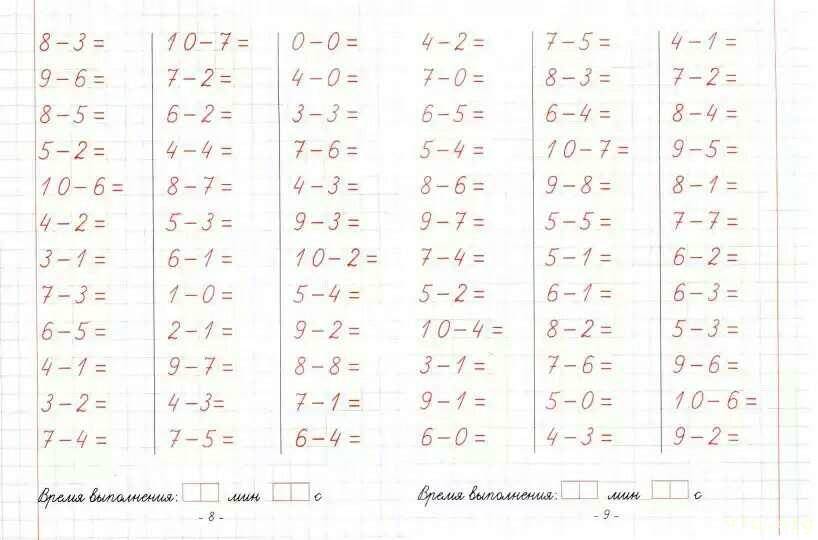 8-3= 10-7= 0-0=
9-6= 7-2= 4-0=
8-5= 6-2= 3-3=
5-2= 4-4= 7-6=
10-6= 8-7= 4-3=
4-2= 5-3= 9-3=
3-1= 6-1= 10-2=
7-3= 1-0= 5-4=
6-5= 2-1= 9-2=
4-1= 9-7= 8-8=
3-2= 4-3= 7-1=
7-4= 7-5= 6-4=
Время выполнения: мин с
- 8 -
4-2= 7-5= 4-1=
7-0= 8-3= 7-2=
6-5= 6-4= 8-4=
5-4= 10-7= 9-5=
8-6= 9-8= 8-1=
9-7= 5-5= 7-7=
7-4= 5-1= 6-2=
5-2= 6-1= 6-3=
10-4= 8-2= 5-3=
3-1= 7-6= 9-6=
9-1= 5-0= 10-6=
6-0= 4-3= 9-2=
Время выполнения: мин с
- 9 -